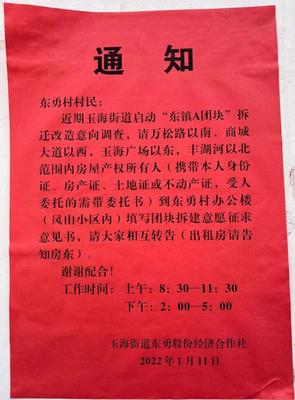 通知
东勇村村民：
近期玉海街道启动“东镇A团块”拆
迁改造意向调查，请万松路以南、商城
大道以西，玉海广场以东，丰湖河以北
范围内房屋产权所有人（携带本人身份
证、房产证、土地证或不动产证，受人
委托的需带委托书）到东勇村办公楼
（凤山小区内）填写团块拆建意愿征求
意见书，请大家相互转告（出租房请告
知房东）。
谢谢配合！
工作时间：上午：8：30—11：30
下午：2：00—5：00
玉海街道东勇股份经济合作社
2022年1月11日